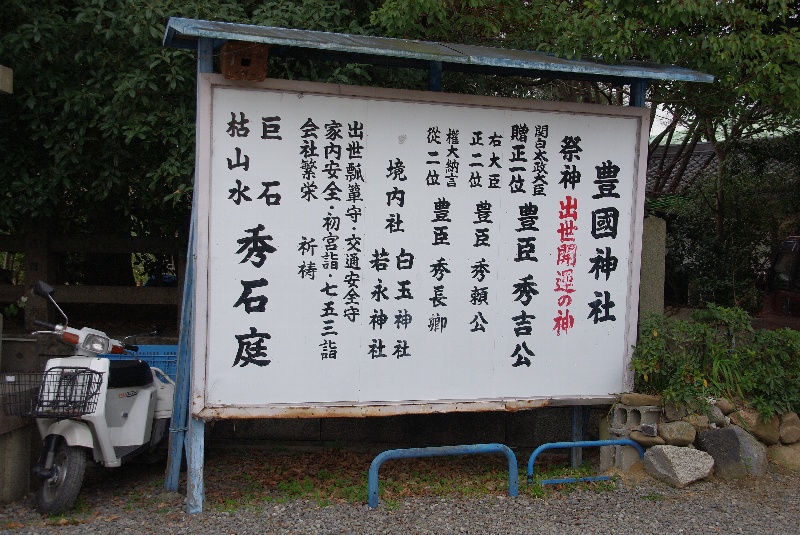 豊國神社
祭神 出世開運の神
関白太政大臣
贈正一位 豊臣 秀吉公
右大臣
正二位 豊臣 秀頼公
権大納言
從二位 豊臣 秀長卿
境内社 白玉神社
若永神社
出世瓢箪守・交通安全守
家内安全・初宮詣・七五三詣
会社繁栄 祈祷
巨石
枯山水 秀石庭